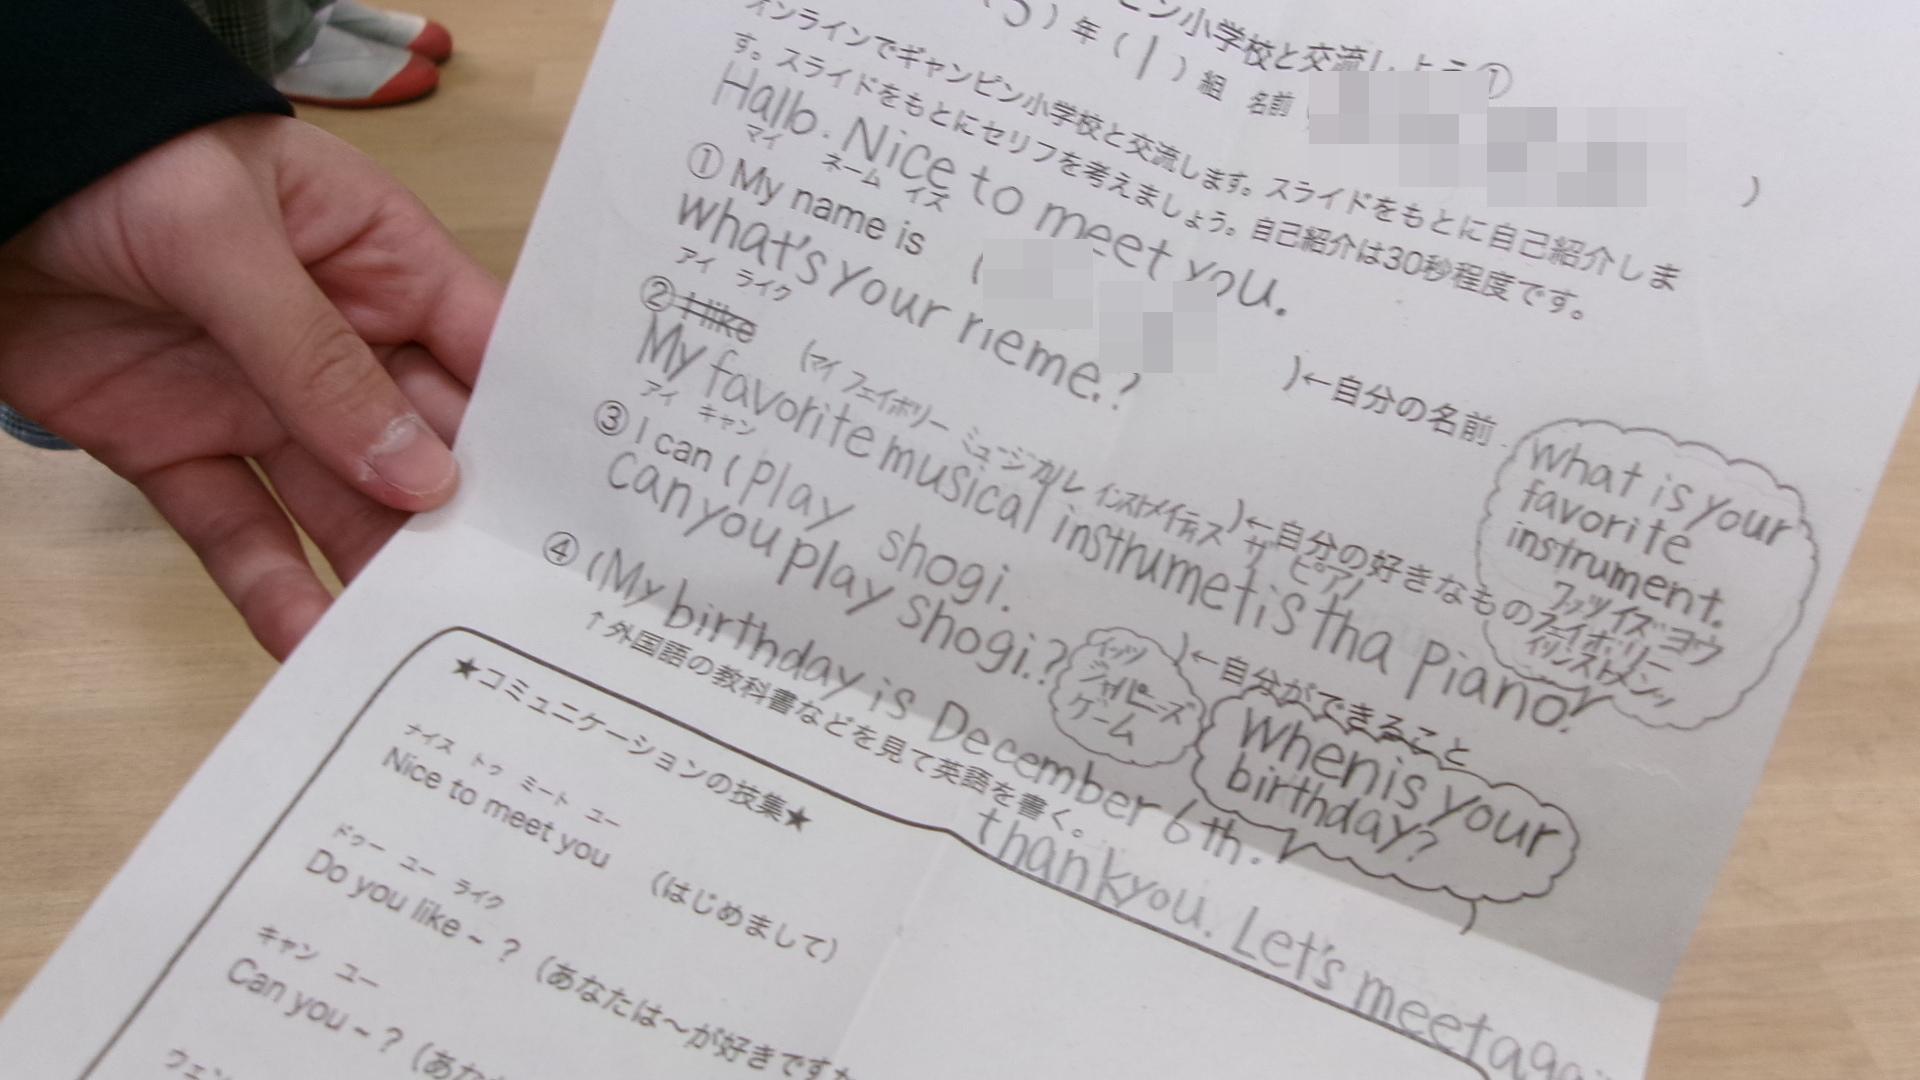 ピン小学校と交流しよう①
(5) 年 (1) 組 名前
オンラインでギャンピン小学校と交流します。スライドをもとに自己紹介しま
す。スライドをもとにセリフを考えましょう。自己紹介は30秒程度です。
Hallo. Nice to meet you.
マイ ネーム イズ
① My name is ( )←自分の名前
what's your neme.?
アイ ライク
② I like )←自分の好きなもの
(マイ フェイボリー ミュージカル インストメイティス ザ ピアノ
My favorite musical instrumet is tha piano!
What is your
favorite
instrument.
ワッツイズ ヨウ
フェイボリー
イリンストメンッ
アイ キャン
③ I can (play shogi. )←自分ができること
can you play shogi.?
イッツ
ジャパニーズ
ゲーム
④ (My birthday is December 6th. )
When is your
birthday?
↑外国語の教科書などを見て英語を書く。
thank you. Let's meet agai
★コミュニケーションの技集★
ナイス トゥ ミート ユー
Nice to meet you (はじめまして)
ドゥー ユー ライク
Do you like ~ ? (あなたは～が好きですか
キャン ユー
Can you ~ ? (あなた
ウェン